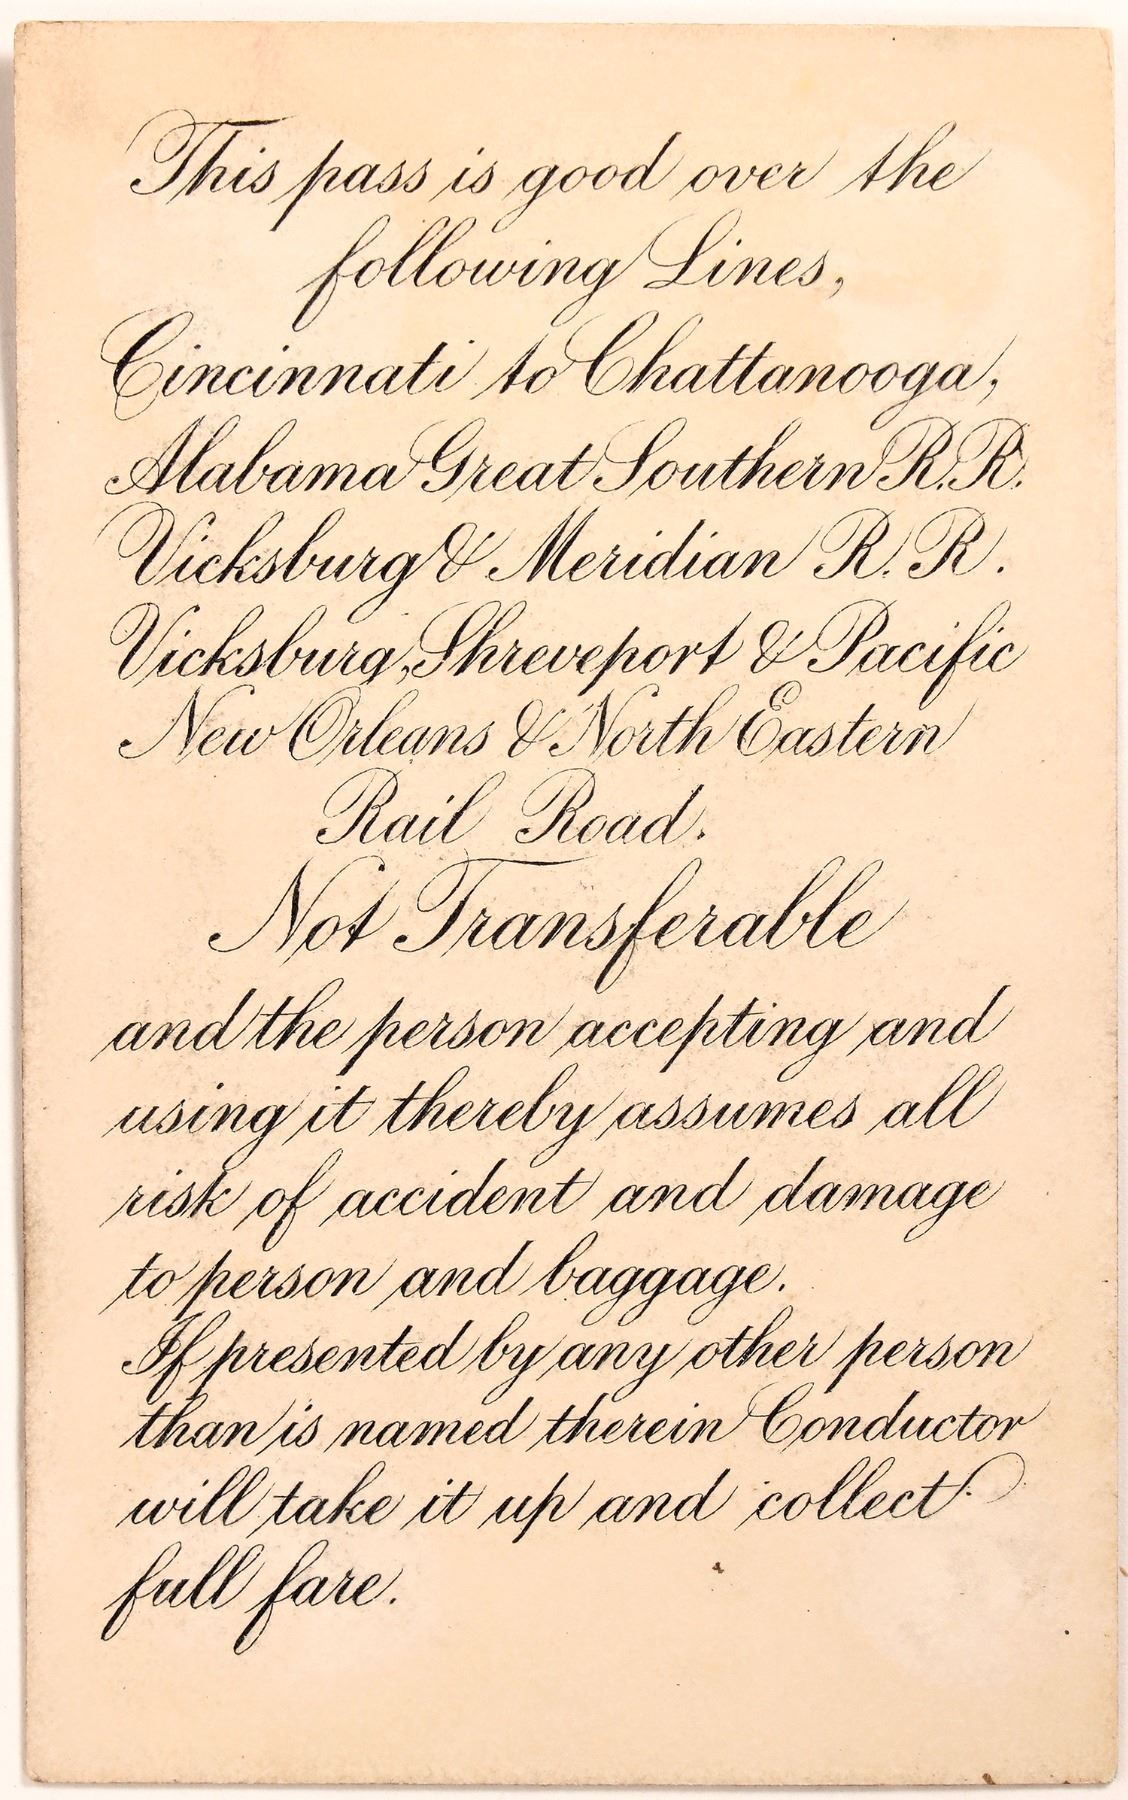 This pass is good over the
following Lines,
Cincinnati to Chattanooga,
Alabama Great Southern R.R.
Vicksburg & Meridian R. R.
Vicksburg, Shreveport & Pacific
New Orleans & North Eastern
Rail Road.
Not Transferable
and the person accepting and
using it thereby assumes all
risk of accident and damage
to person and baggage.
If presented by any other person
than is named therein Conductor
will take it up and collect
full fare.